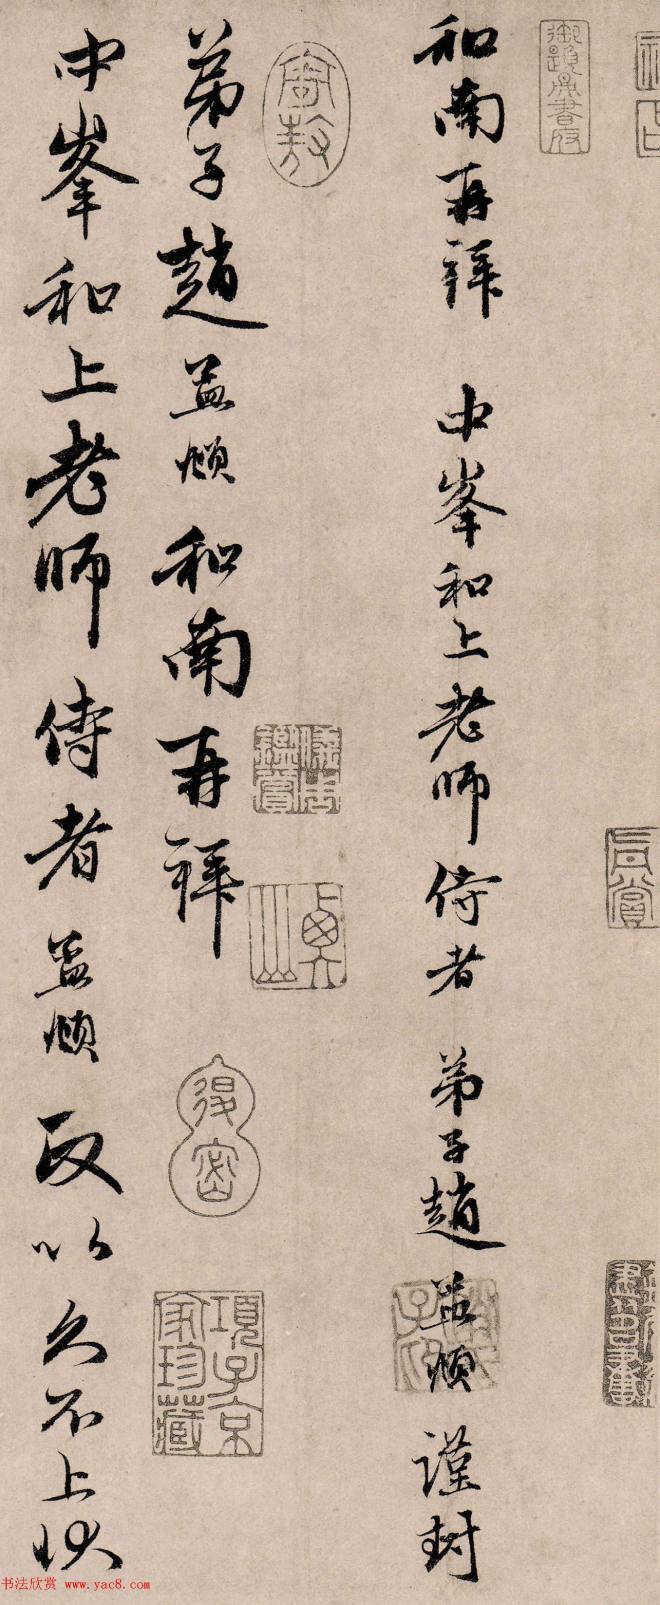 和南再拜 中峯和上老师侍者 弟子趙孟頫謹封
弟子趙孟頫和南再拜
中峯和上老师侍者孟頫政以久不上状
項子京家珍藏
鑑賞
寄敖
密
书法欣赏 www.yac8.com